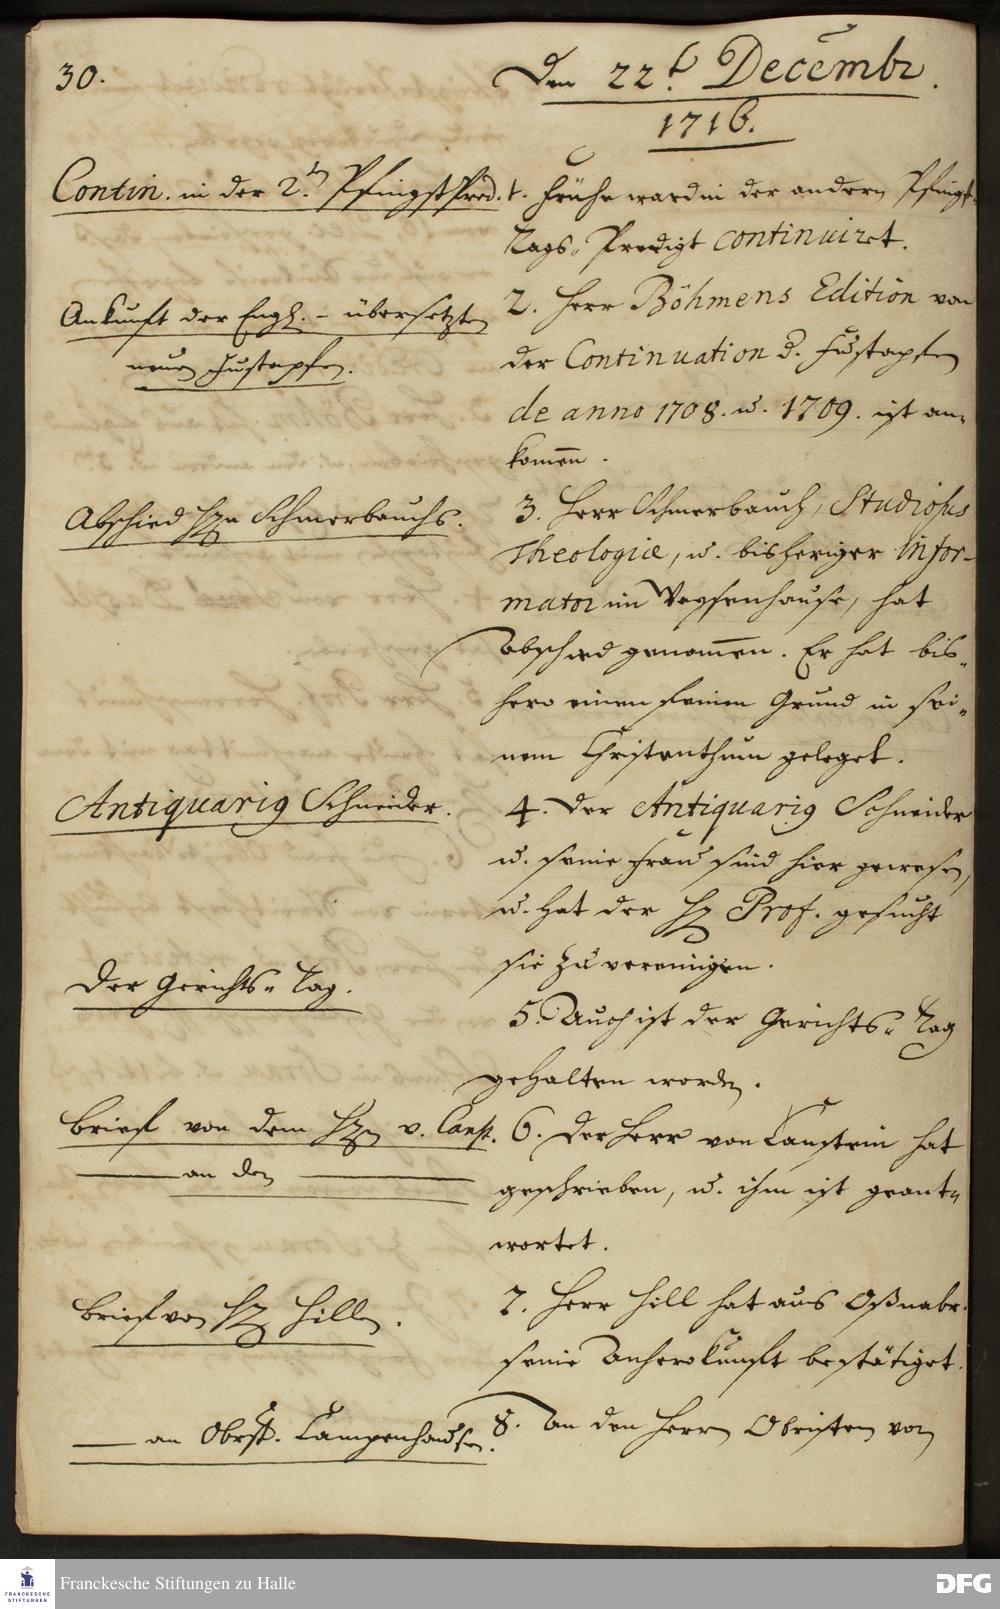 30.
Den 22.t Decembr.
1716.
Contin. in der 2.n PfingstPred.
1. Frühe ward in der andern Pfingst-
Tags-Predigt continuiret.
Ankunft der Engl. - übersetzten
neuen Fustapfen.
2. Herr Böhmens Edition von
der Continuation d. Fustapfen
de anno 1708. u. 1709. ist an-
kom̅en.
Abschied Hrn Schmerbauchs.
3. Herr Schmerbauch, Studiosus
Theologiæ, u. bisheriger Infor-
mator im Waysenhause, hat
Abschied genom̅en. Er hat bis-
hero einen feinen Grund in sei-
nem Christenthum geleget.
Antiquarig Schneider.
4. Der Antiquarig Schneider
u. seine Frau sind hier gewesen,
u. hat der Hr Prof. gesucht
sie zu vereinigen.
Der Gerichts-Tag.
5. Auch ist der Gerichts-Tag
gehalten worden.
Brief von dem Hrn v. Canst.
—— an den ——
6. Der Herr von Canstein hat
geschrieben, u. ihm ist geant-
wortet.
Brief von Hr Hillen.
7. Herr Hill hat aus Oßnabr.
seine Anherokunft bestätiget.
—— an Obrist. Campenhausen.
8. An den Herrn Obristen von
FRANCKESCHE
STIFTUNGEN
Franckesche Stiftungen zu Halle
DFG